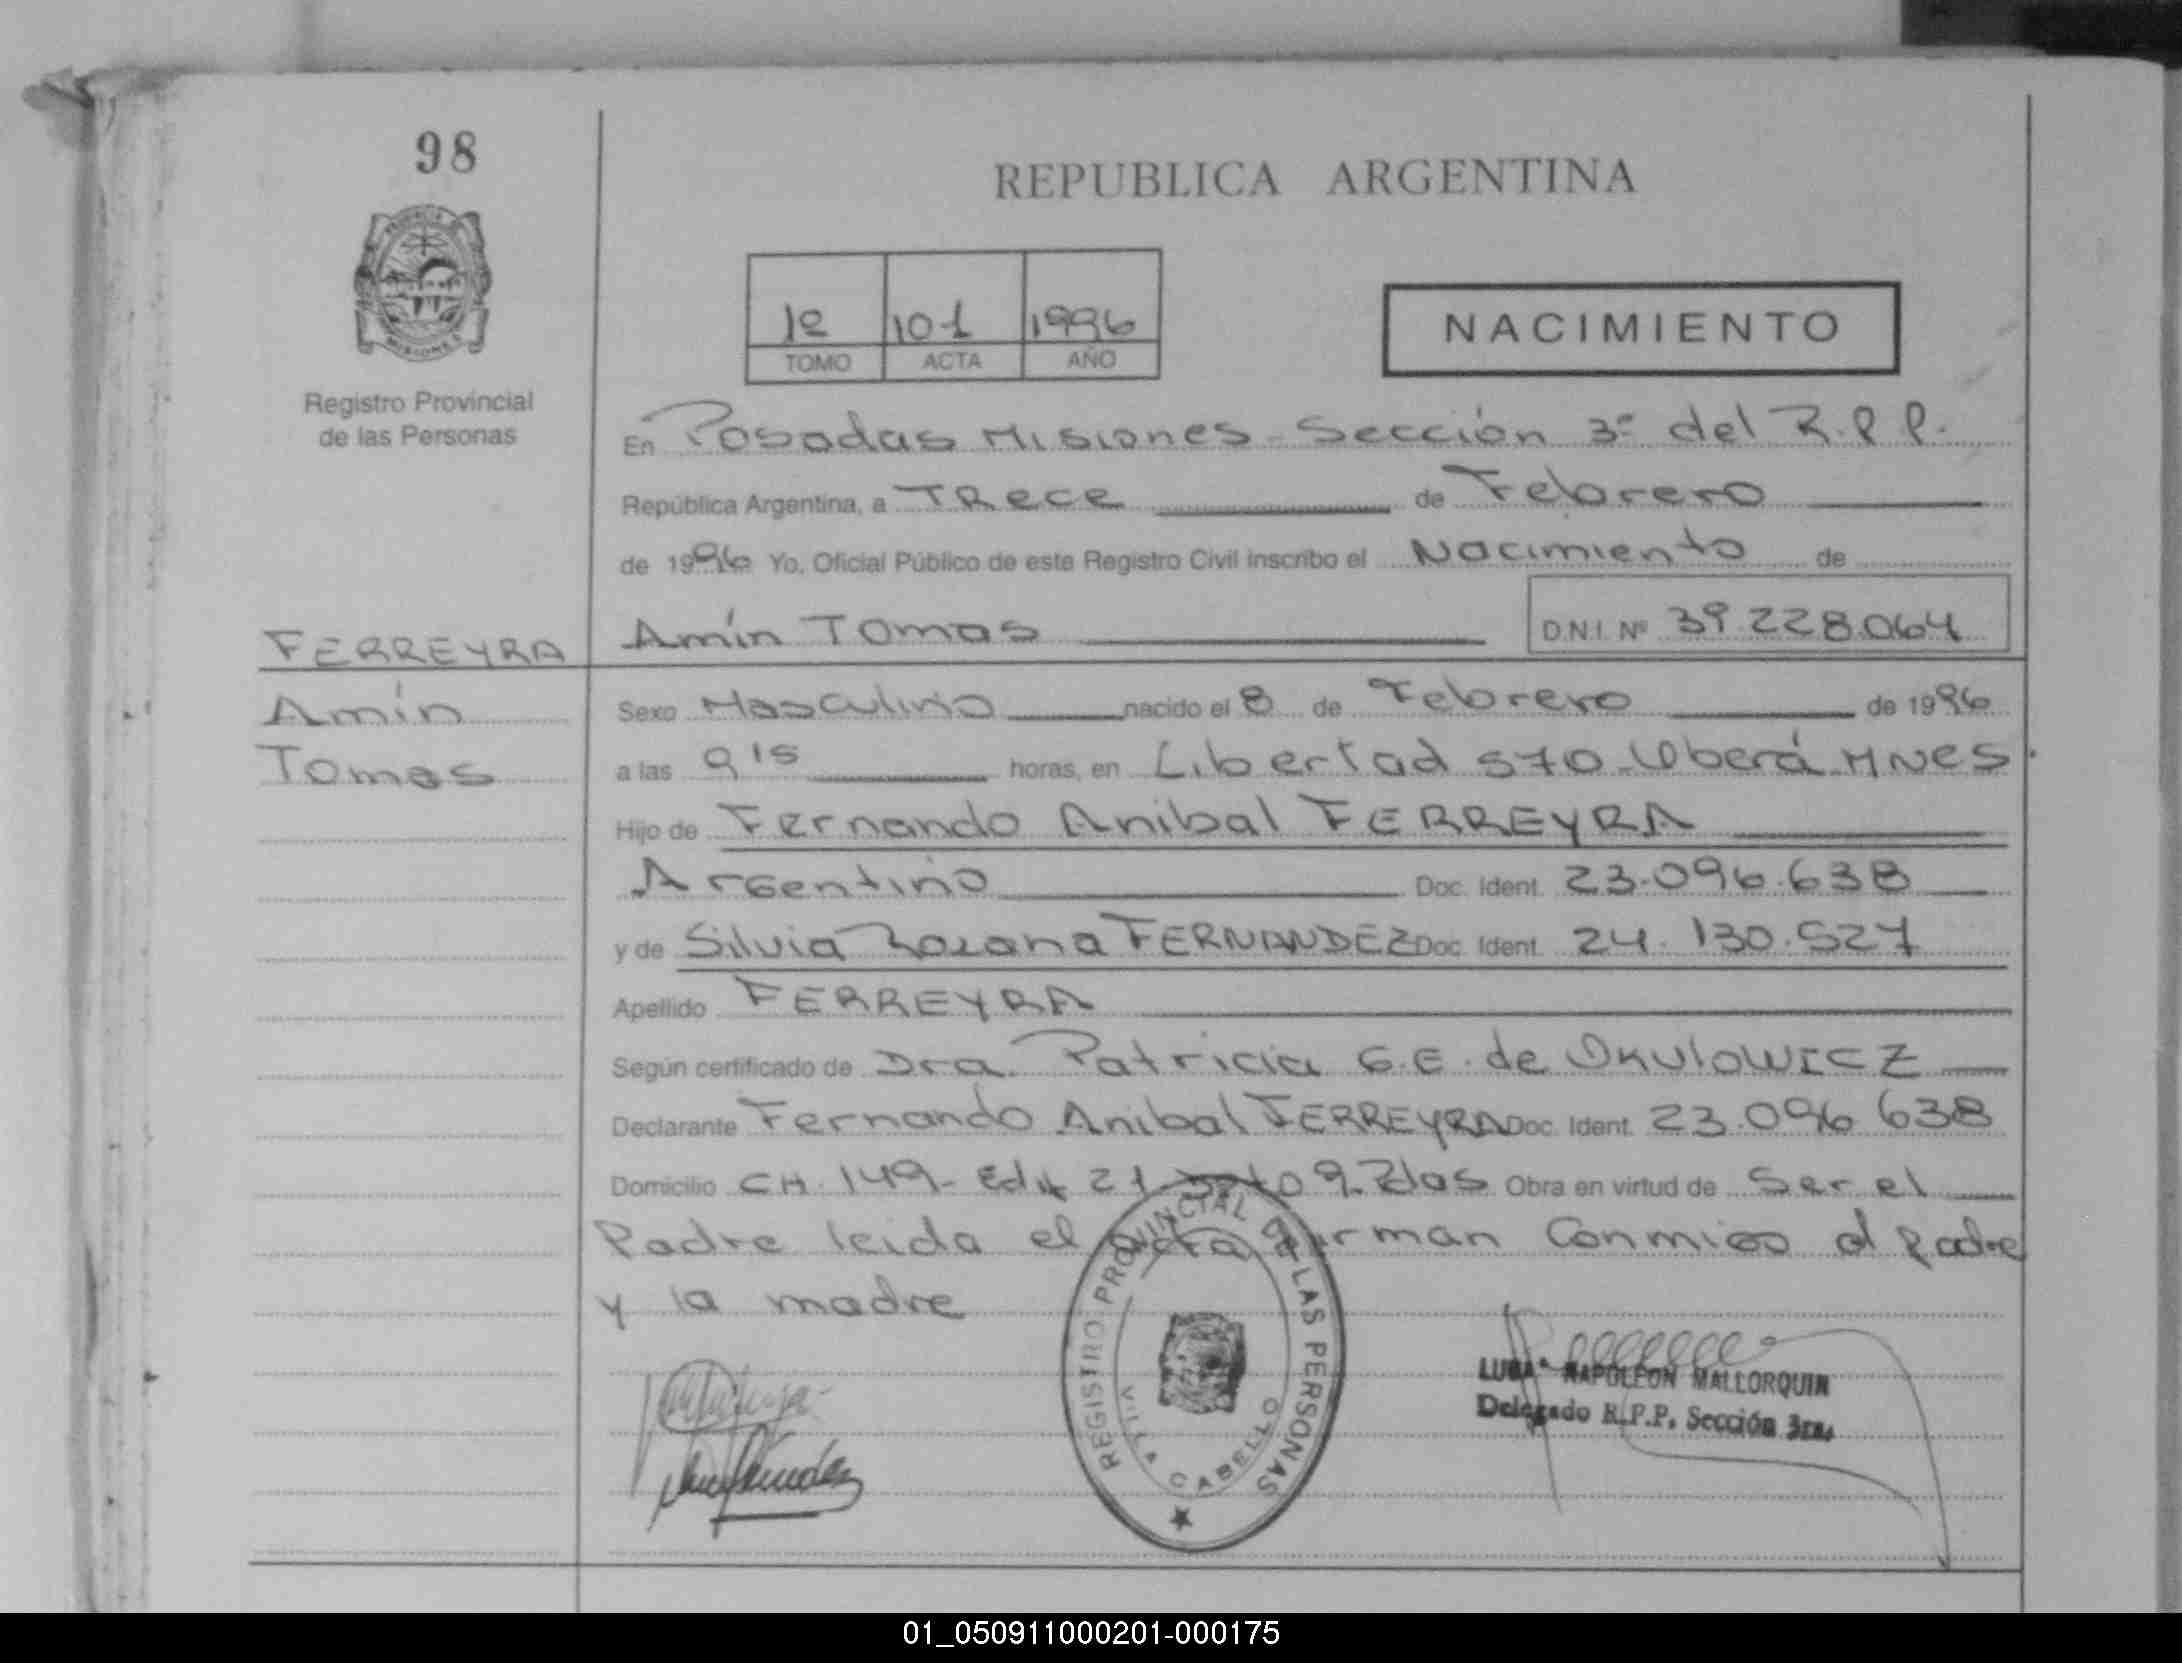 98
REPUBLICA ARGENTINA
PROVINCIA
MISIONES
Registro Provincial
de las Personas
1º 101 1996
TOMO ACTA AÑO
NACIMIENTO
En Posadas Misiones - Sección 3º del R.P.P.
República Argentina, a Trece de Febrero
de 1996 Yo, Oficial Público de este Registro Civil inscribo el Nacimiento de
FERREYRA Amín Tomas D.N.I. Nº 39.228.064
Amín
Tomas
Sexo Masculino nacido el 8 de Febrero de 1996
a las 9'15 horas, en Libertad 570 - Oberá Mnes.
Hijo de Fernando Anibal FERREYRA
Argentino Doc. Ident. 23.096.638
y de Silvia Rozana FERNANDEZ Doc. Ident. 24.130.527
Apellido FERREYRA
Según certificado de Dra. Patricia G.E. de OKULOWICZ
Declarante Fernando Anibal FERREYRA Doc. Ident. 23.096.638
Domicilio CH. 149 - Edif 21 9. Pdas Obra en virtud de Ser el
Padre leida el acta firman Conmigo el padre
y la madre
REGISTRO PROVINCIAL DE LAS PERSONAS
VILLA CABELLO
NAPOLEON MALLORQUIN
Delegado R.P.P. Sección 3ra.
01_050911000201-000175